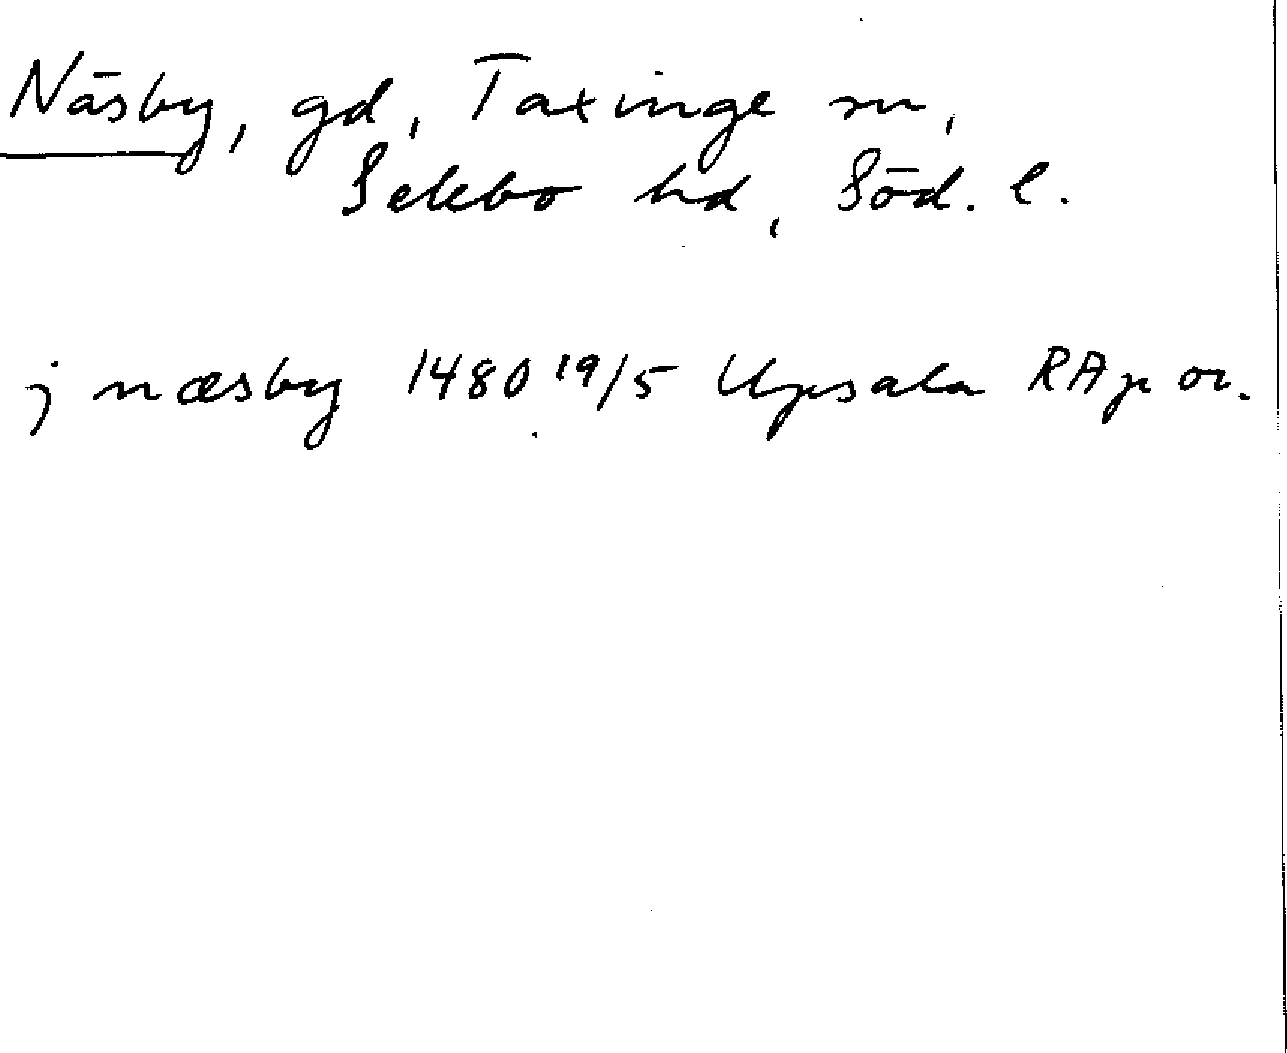 Näsby, gd, Taxinge sn,
Selebo hd, Söd. l.
j næsby 1480 19/5 Upsala RAp or.